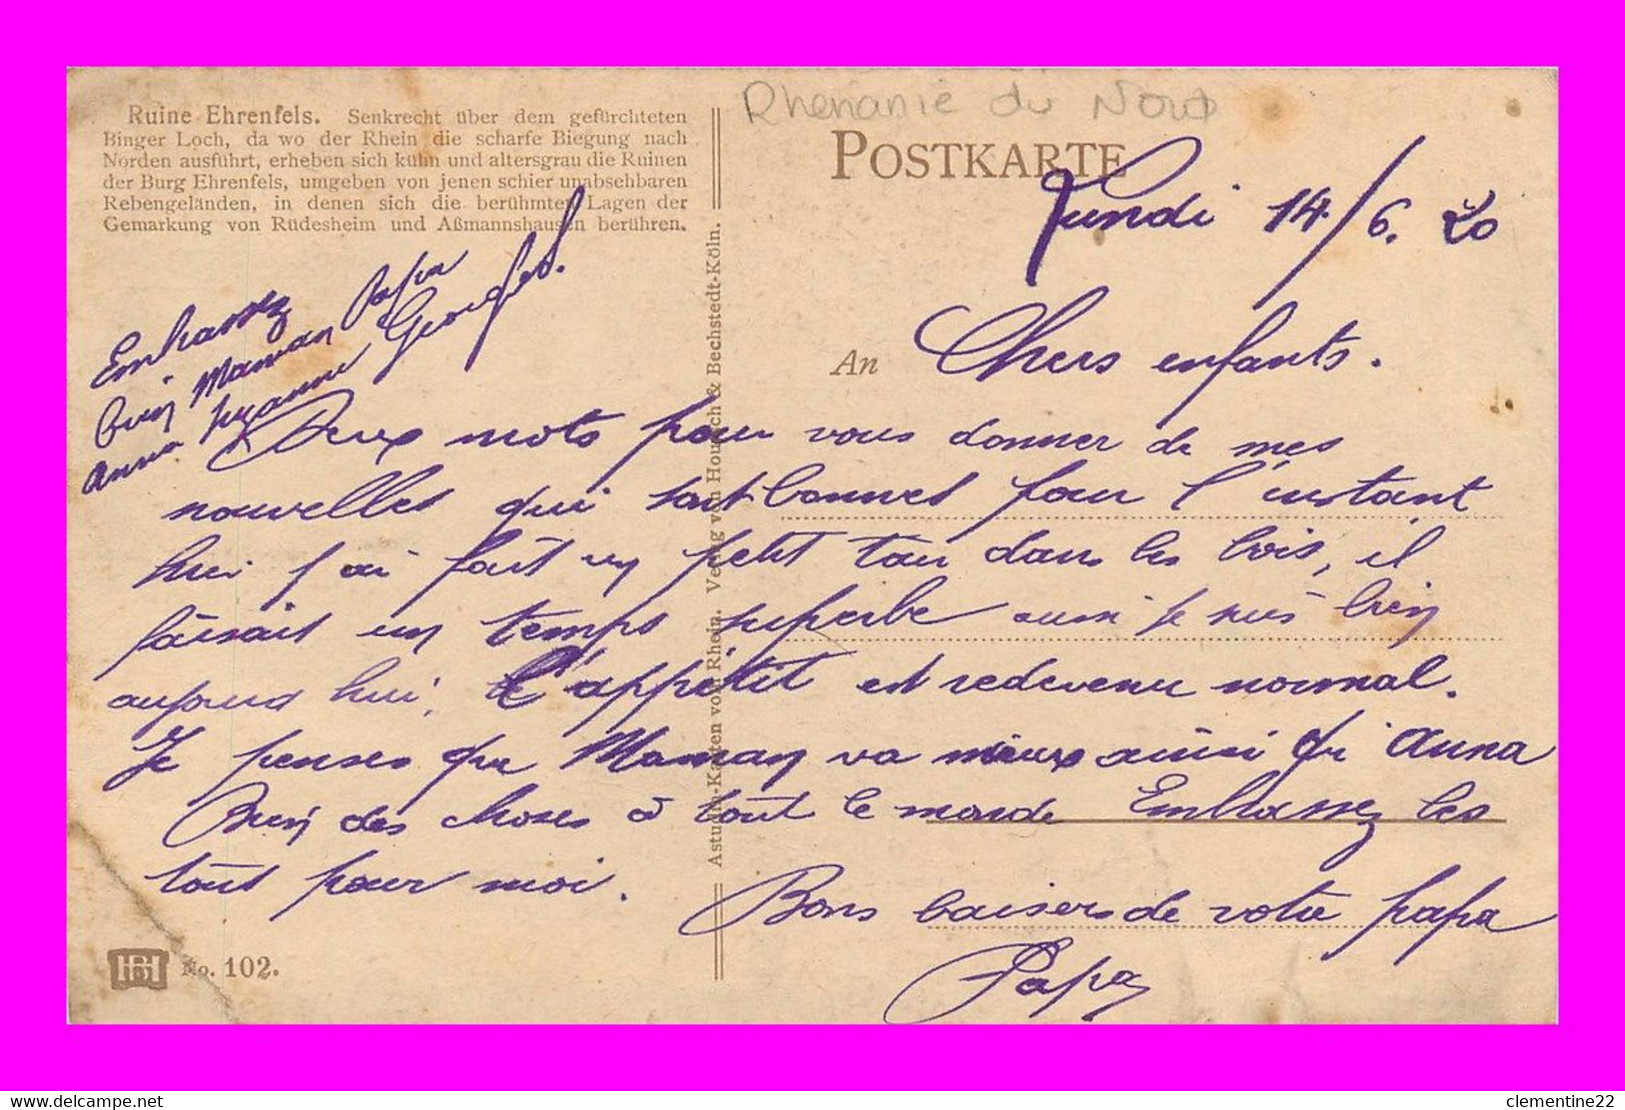 Rhenanie du Nord
Ruine Ehrenfels. Senkrecht über dem gefürchteten
Binger Loch, da wo der Rhein die scharfe Biegung nach
Norden ausführt, erheben sich kühn und altersgrau die Ruinen
der Burg Ehrenfels, umgeben von jenen schier unabsehbaren
Rebengeländen, in denen sich die berühmten Lagen der
Gemarkung von Rüdesheim und Aßmannshausen berühren.
POSTKARTE
Lundi 14/6. 20
An
Chers enfants.
Deux mots pour vous donner de mes
nouvelles qui sont bonnes pour l'instant
hier j'ai fait un petit tour dans les bois, il
faisait un temps superbe aussi je suis bien
aujourd hui, l'appétit est redevenu normal.
Je penses que Maman va mieux ainsi qu'Anna
Bien des choses à tout le monde Embrassez les
tous pour moi.
Bons baisers de votre papa
Papa
Embrassez
bien Maman Papa
Anna Suzanne Georges.
Astudin-Karten vom Rhein. Verlag von Hoursch & Bechstedt-Köln.
HB No. 102.
www.delcampe.net
clementine22